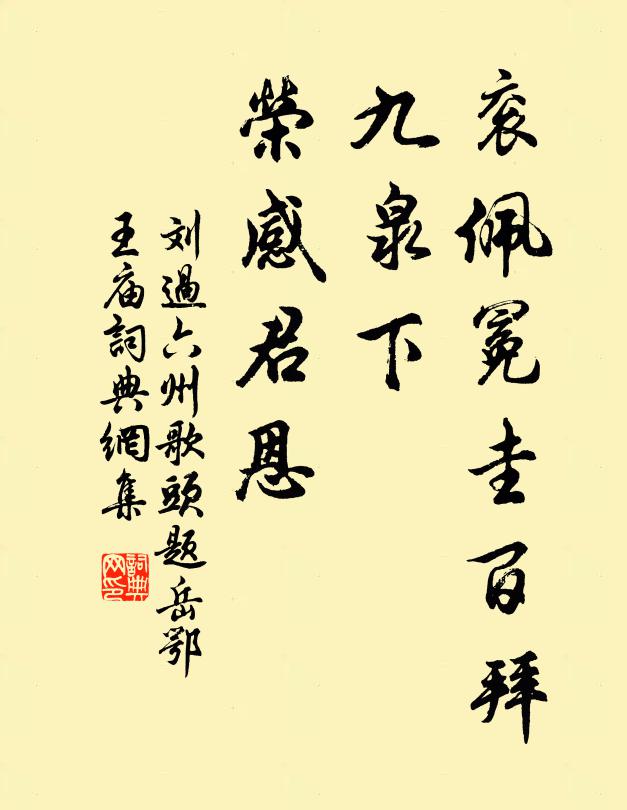 衮佩冕圭百拜
九泉下
荣感君恩
刘過六州歌頭题岳鄂
王庙詞典網集
詞典网印